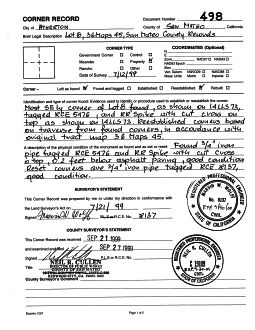 CORNER RECORD
Document Number 498
City of ATHERTON County of SAN MATEO, California
Brief Legal Description Lot B, 36 Maps 45, San Mateo County Records
CORNER TYPE
COORDINATES (Optional)
Government Corner Control
Meander Property
Rancho Other
Date of Survey 7/12/99
Corner - Left as found Found and tagged Established Reestablished Rebuilt
Identification and type of corner found: Evidence used to identify or procedure used to establish or reestablish the corner:
Most SE'ly corner of Lot B found, as shown on 14 LLS 73,
tagged RCE 5476 and RR Spike with cut cross on
top as shown on 14 LLS 73. Reestablished corners based
on traverse from found corners, in accordance with
original tract map 36 Maps 45.
A description of the physical condition of the monument as found and as set or reset: Found 3/4" iron
pipe tagged RCE 5476 and RR Spike with cut cross
on top, 0.2 feet below asphalt paving, good condition
Reset corners are 3/4" iron pipe tagged RCE 8137,
good condition.
SURVEYOR'S STATEMENT
This Corner Record was prepared by me or under my direction in conformance with
the Land Surveyor's Act on 7/21/99
Signed P.L.S. or R.C.E. No. 8137
COUNTY SURVEYOR'S STATEMENT
This Corner Record was received SEP 21 1999
and examined and filed SEP 27 1999
Signed
NEIL R. CULLEN
DIRECTOR OF PUBLIC WORKS
COUNTY OF SAN MATEO
REDWOOD CITY, CA
County Surveyor's Comment
Page 1 of 2